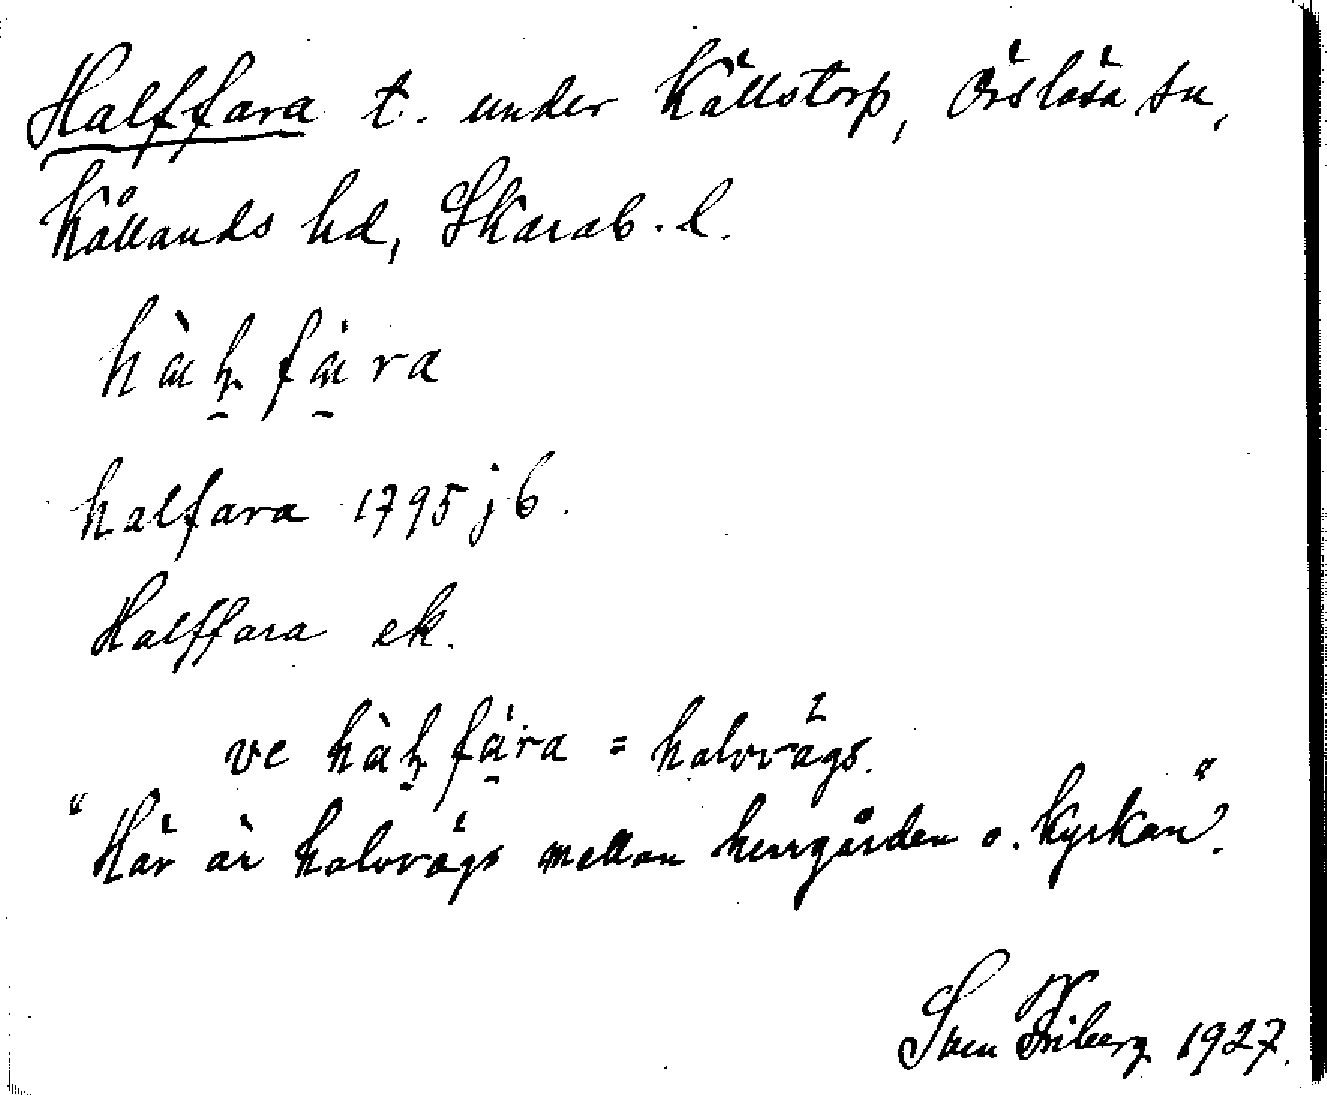 Halffara t. under Källstorp, Örslösa sn,
Kållands hd, Skarab. l.
hàꞕ fára
halfara 1795 jb.
Halffara ek.
ve hàꞕ fára = halvvägs.
"Här är halvvägs mellan herrgården o. kyrkan".
Sven Friberg 1927.